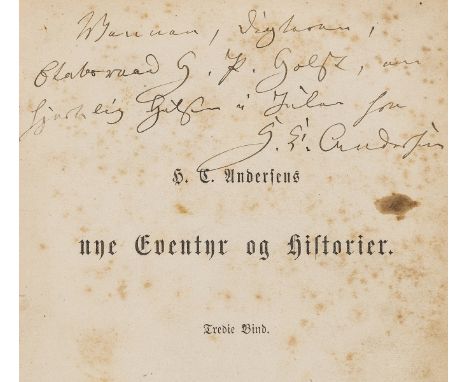 Vennen, Digteren,
Etatsraad H. P. Holst, en
hjertelig Hilsen i Julen fra
H. C. Andersen
H. C. Andersens
nye Eventyr og Historier.
Tredie Bind.